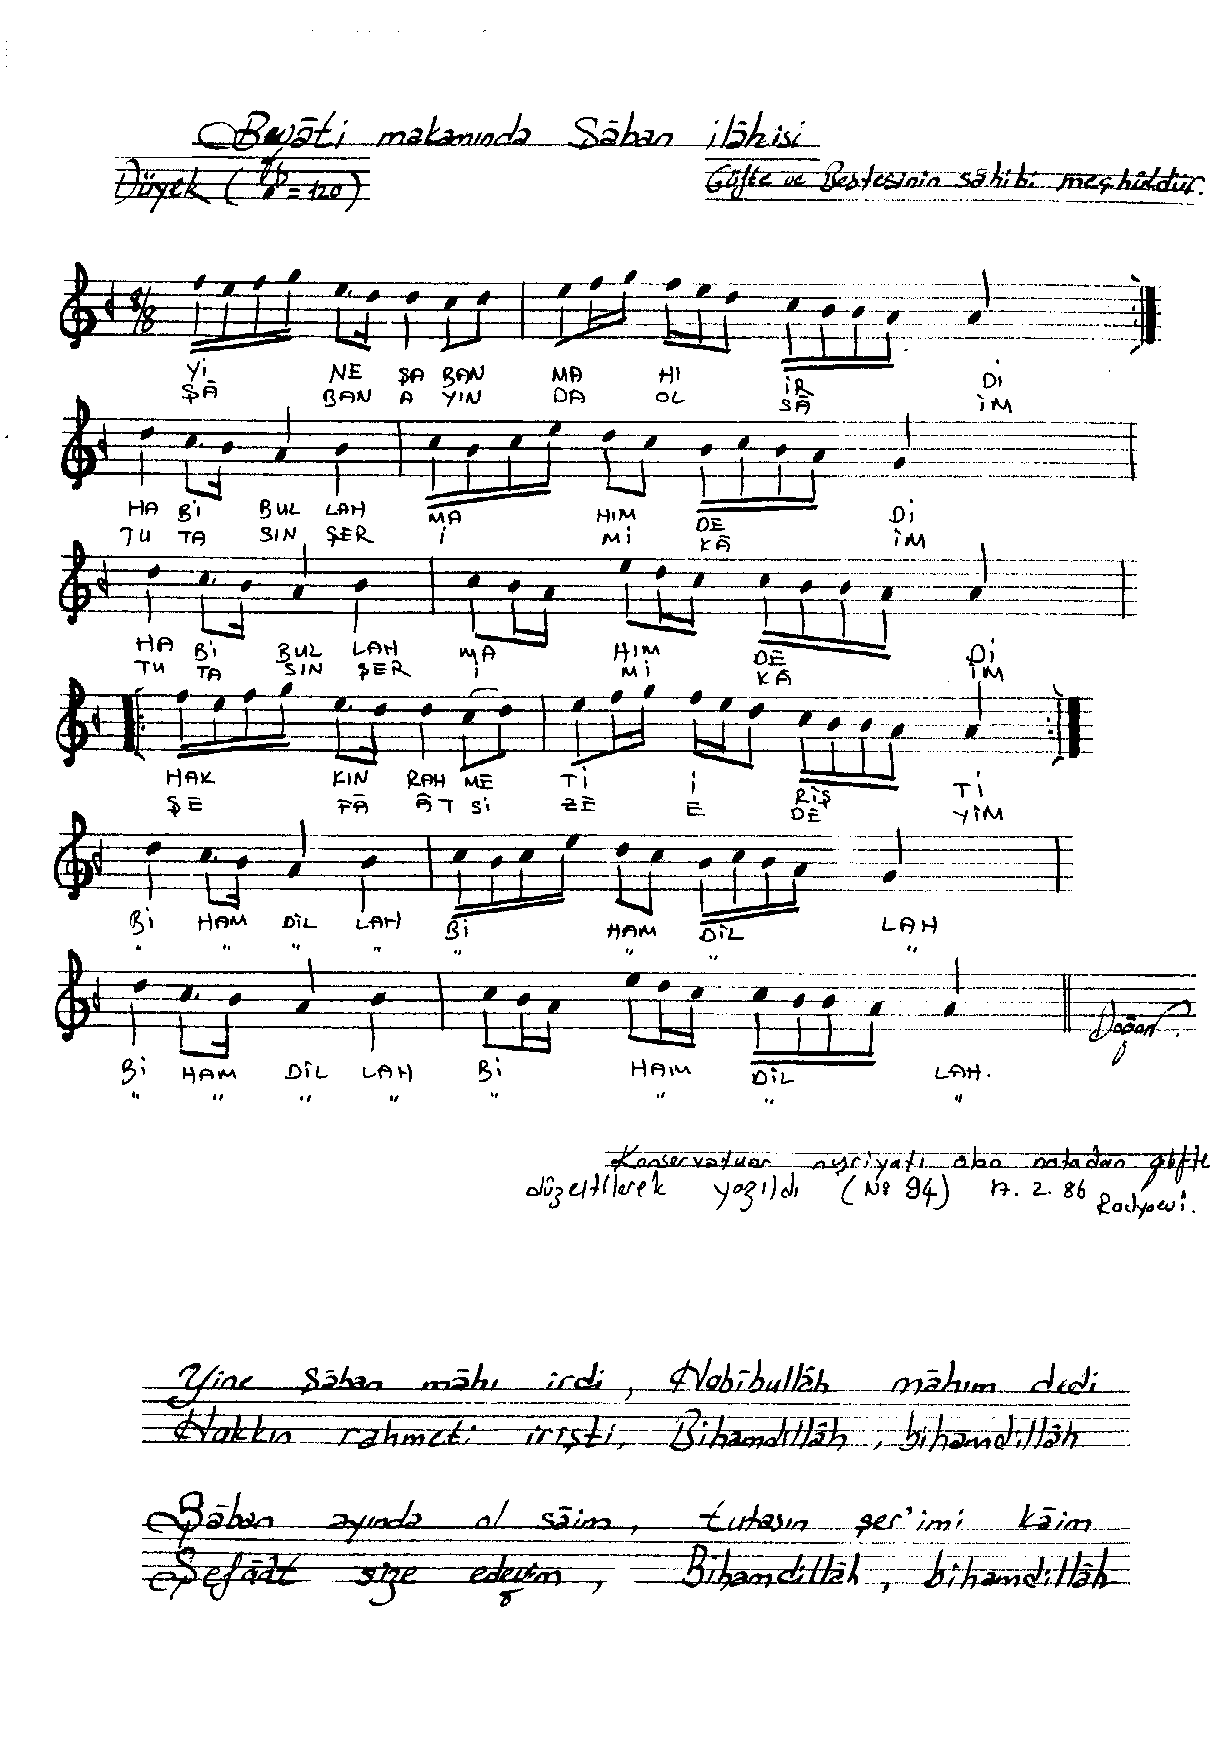 Beyâti makamında Şâban ilâhisi
Düyek ( = 120)
Güfte ve Bestesinin sâhibi meçhûldür.
8/8
Yİ NE ŞA BAN MA HI İR Dİ
ŞÂ BAN A YIN DA OL SÂ İM
HA Bİ BUL LAH MA HIM DE Dİ
TU TA SIN ŞER İ Mİ KÂ İM
HA Bİ BUL LAH MA HIM DE Dİ
TU TA SIN ŞER İ Mİ KÂ İM
HAK KIN RAH ME Tİ İ RİŞ Tİ
ŞE FÂ ÂT Sİ ZE E DE YİM
Bİ HAM DİL LAH Bİ HAM DİL LAH
" " " " " " " "
Doğan
Bİ HAM DİL LAH Bİ HAM DİL LAH.
" " " " " " " "
Konservatuar neşriyatı olan notadan güfte
düzeltilerek yazıldı (No 94) 17. 2. 86 Radyoevi.
Yine Şâban mâhı irdi, Habîbullâh mâhım dedi
Hakkın rahmeti irişti, Bihamdillâh, bihamdillâh
Şâban ayında ol sâim, tutasın şer'imi kâim
Şefâât size edeyim, Bihamdillâh, bihamdillâh